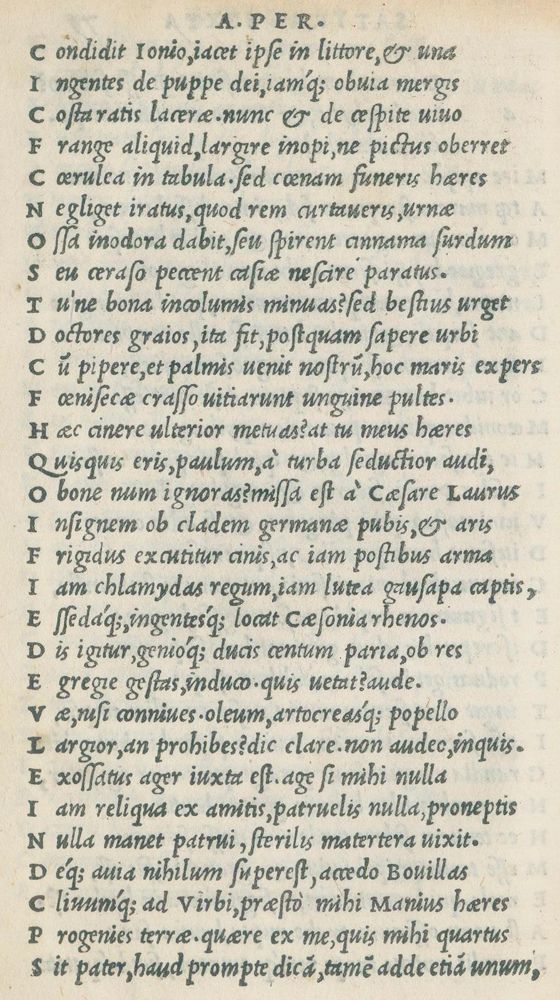 A. PER.
C ondidit Ionio,iacet ipse in littore,& una
I ngentes de puppe dei,iamq́; obuia mergis
C osta ratis laceræ.nunc & de cespite uiuo
F range aliquid,largire inopi,ne pictus oberret
C œrulea in tabula.sed cœnam funeris hæres
N egliget iratus,quod rem curtaueris,urnæ
O ssa inodora dabit,seu spirent cinnama surdum
S eu ceraso peccent casiæ nescire paratus.
T u'ne bona incolumis minuas?sed bestius urget
D octores graios,ita fit,postquam sapere urbi
C ū pipere,et palmis uenit nostrū,hoc maris expers
F œnisecæ crasso uitiarunt unguine pultes.
H æc cinere ulterior metuas?at tu meus hæres
Q uisquis eris,paulum,à turba seductior audi,
O bone num ignoras?missa est à Cæsare Laurus
I nsignem ob cladem germanæ pubis,& aris
F rigidus excutitur cinis,ac iam postibus arma
I am chlamydas regum,iam lutea gausapa captis,
E ssedaq́;,ingentesq́; locat Cæsonia rhenos.
D is igitur,genioq́; ducis centum paria,ob res
E gregie gestas,induco.quis uetat?aude.
V æ,nisi conniues.oleum,artocreasq́; popello
L argior,an prohibes?dic clare.non audeo,inquis.
E xossatus ager iuxta est.age si mihi nulla
I am reliqua ex amitis,patruelis nulla,proneptis
N ulla manet patrui,sterilis matertera uixit.
D eq́; auia nihilum superest,accedo Bouillas
C liuumq́; ad Virbi,præsto mihi Manius hæres
P rogenies terræ.quære ex me,quis mihi quartus
S it pater,haud prompte dicā,tamē adde etiā unum,